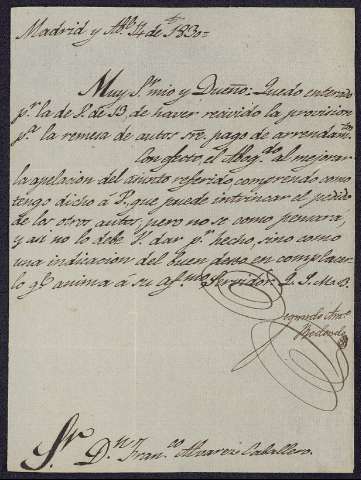 Madrid y Ab.l 14 de 1830=
Muy S.r mio y Dueño: Quedo enterado
p.r la de V. de 13, de haver recivido la provision
p.a la remesa de autos sre. pago de arrendam.tos
Con efecto, el Abog.do al mejorar
la apelacion del asunto referido, comprendo como
tengo dicho a V. que puede intrincar el pedido
de los otros autos, pero no se como pensará,
y asi no lo debe V. dar p.r hecho, sino como
una indicacion del buen deseo en complacer
lo q.e anima á su af.mo Servidor Q. S. M. B.
Segundo Ant.o
Redondo
S.r D.n Fran.co Alvarez Caballero.